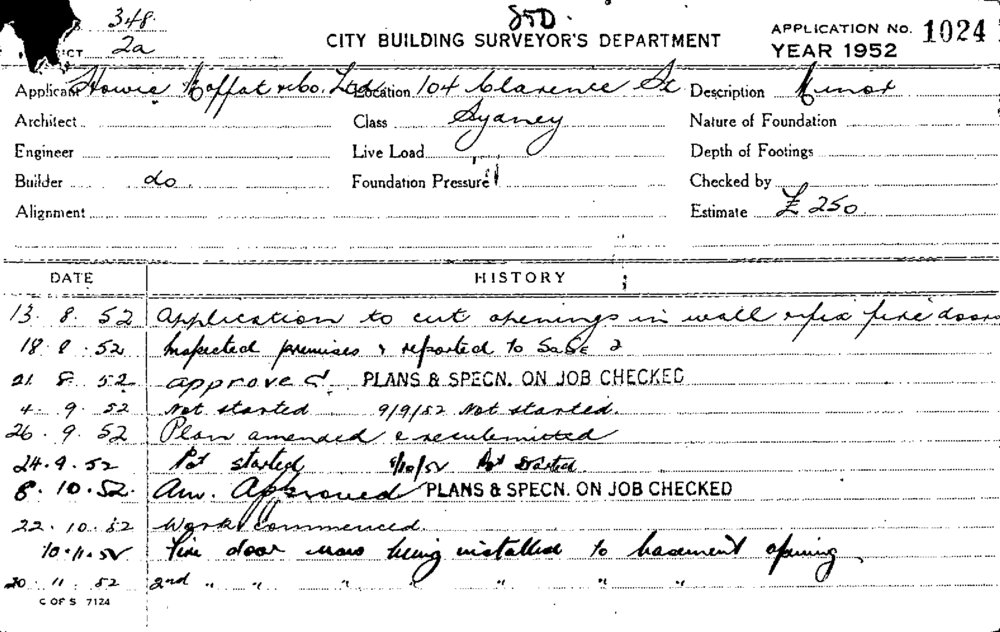 348. STD.
CT 2a CITY BUILDING SURVEYOR'S DEPARTMENT APPLICATION NO. 1024
YEAR 1952
Applicant Howie Moffat & Co. Ltd Location 104 Clarence St Description Minor
Architect Class Sydney Nature of Foundation
Engineer Live Load Depth of Footings
Builder do Foundation Pressure Checked by
Alignment Estimate £ 250
DATE HISTORY
13. 8. 52 Application to cut openings in wall & fix fire doors
18. 8. 52 Inspected premises & reported to
21. 8. 52 approved PLANS & SPECN. ON JOB CHECKED
4. 9. 52 Not started 9/9/52 Not started.
26. 9. 52 Plan amended & resubmitted
24. 9. 52 Not started 8/10/52 Not Started
8. 10. 52. Am. Approved PLANS & SPECN. ON JOB CHECKED
22. 10. 52 Work Commenced.
10.11.52 Fire door now being installed to basement opening
20. 11. 52 2nd " " " " " " "
C OF S 7124